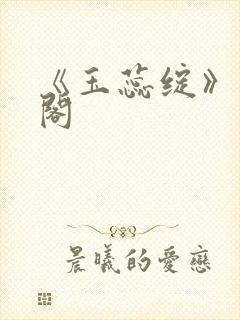 《玉蕊绽》
阁
晨曦的愛戀